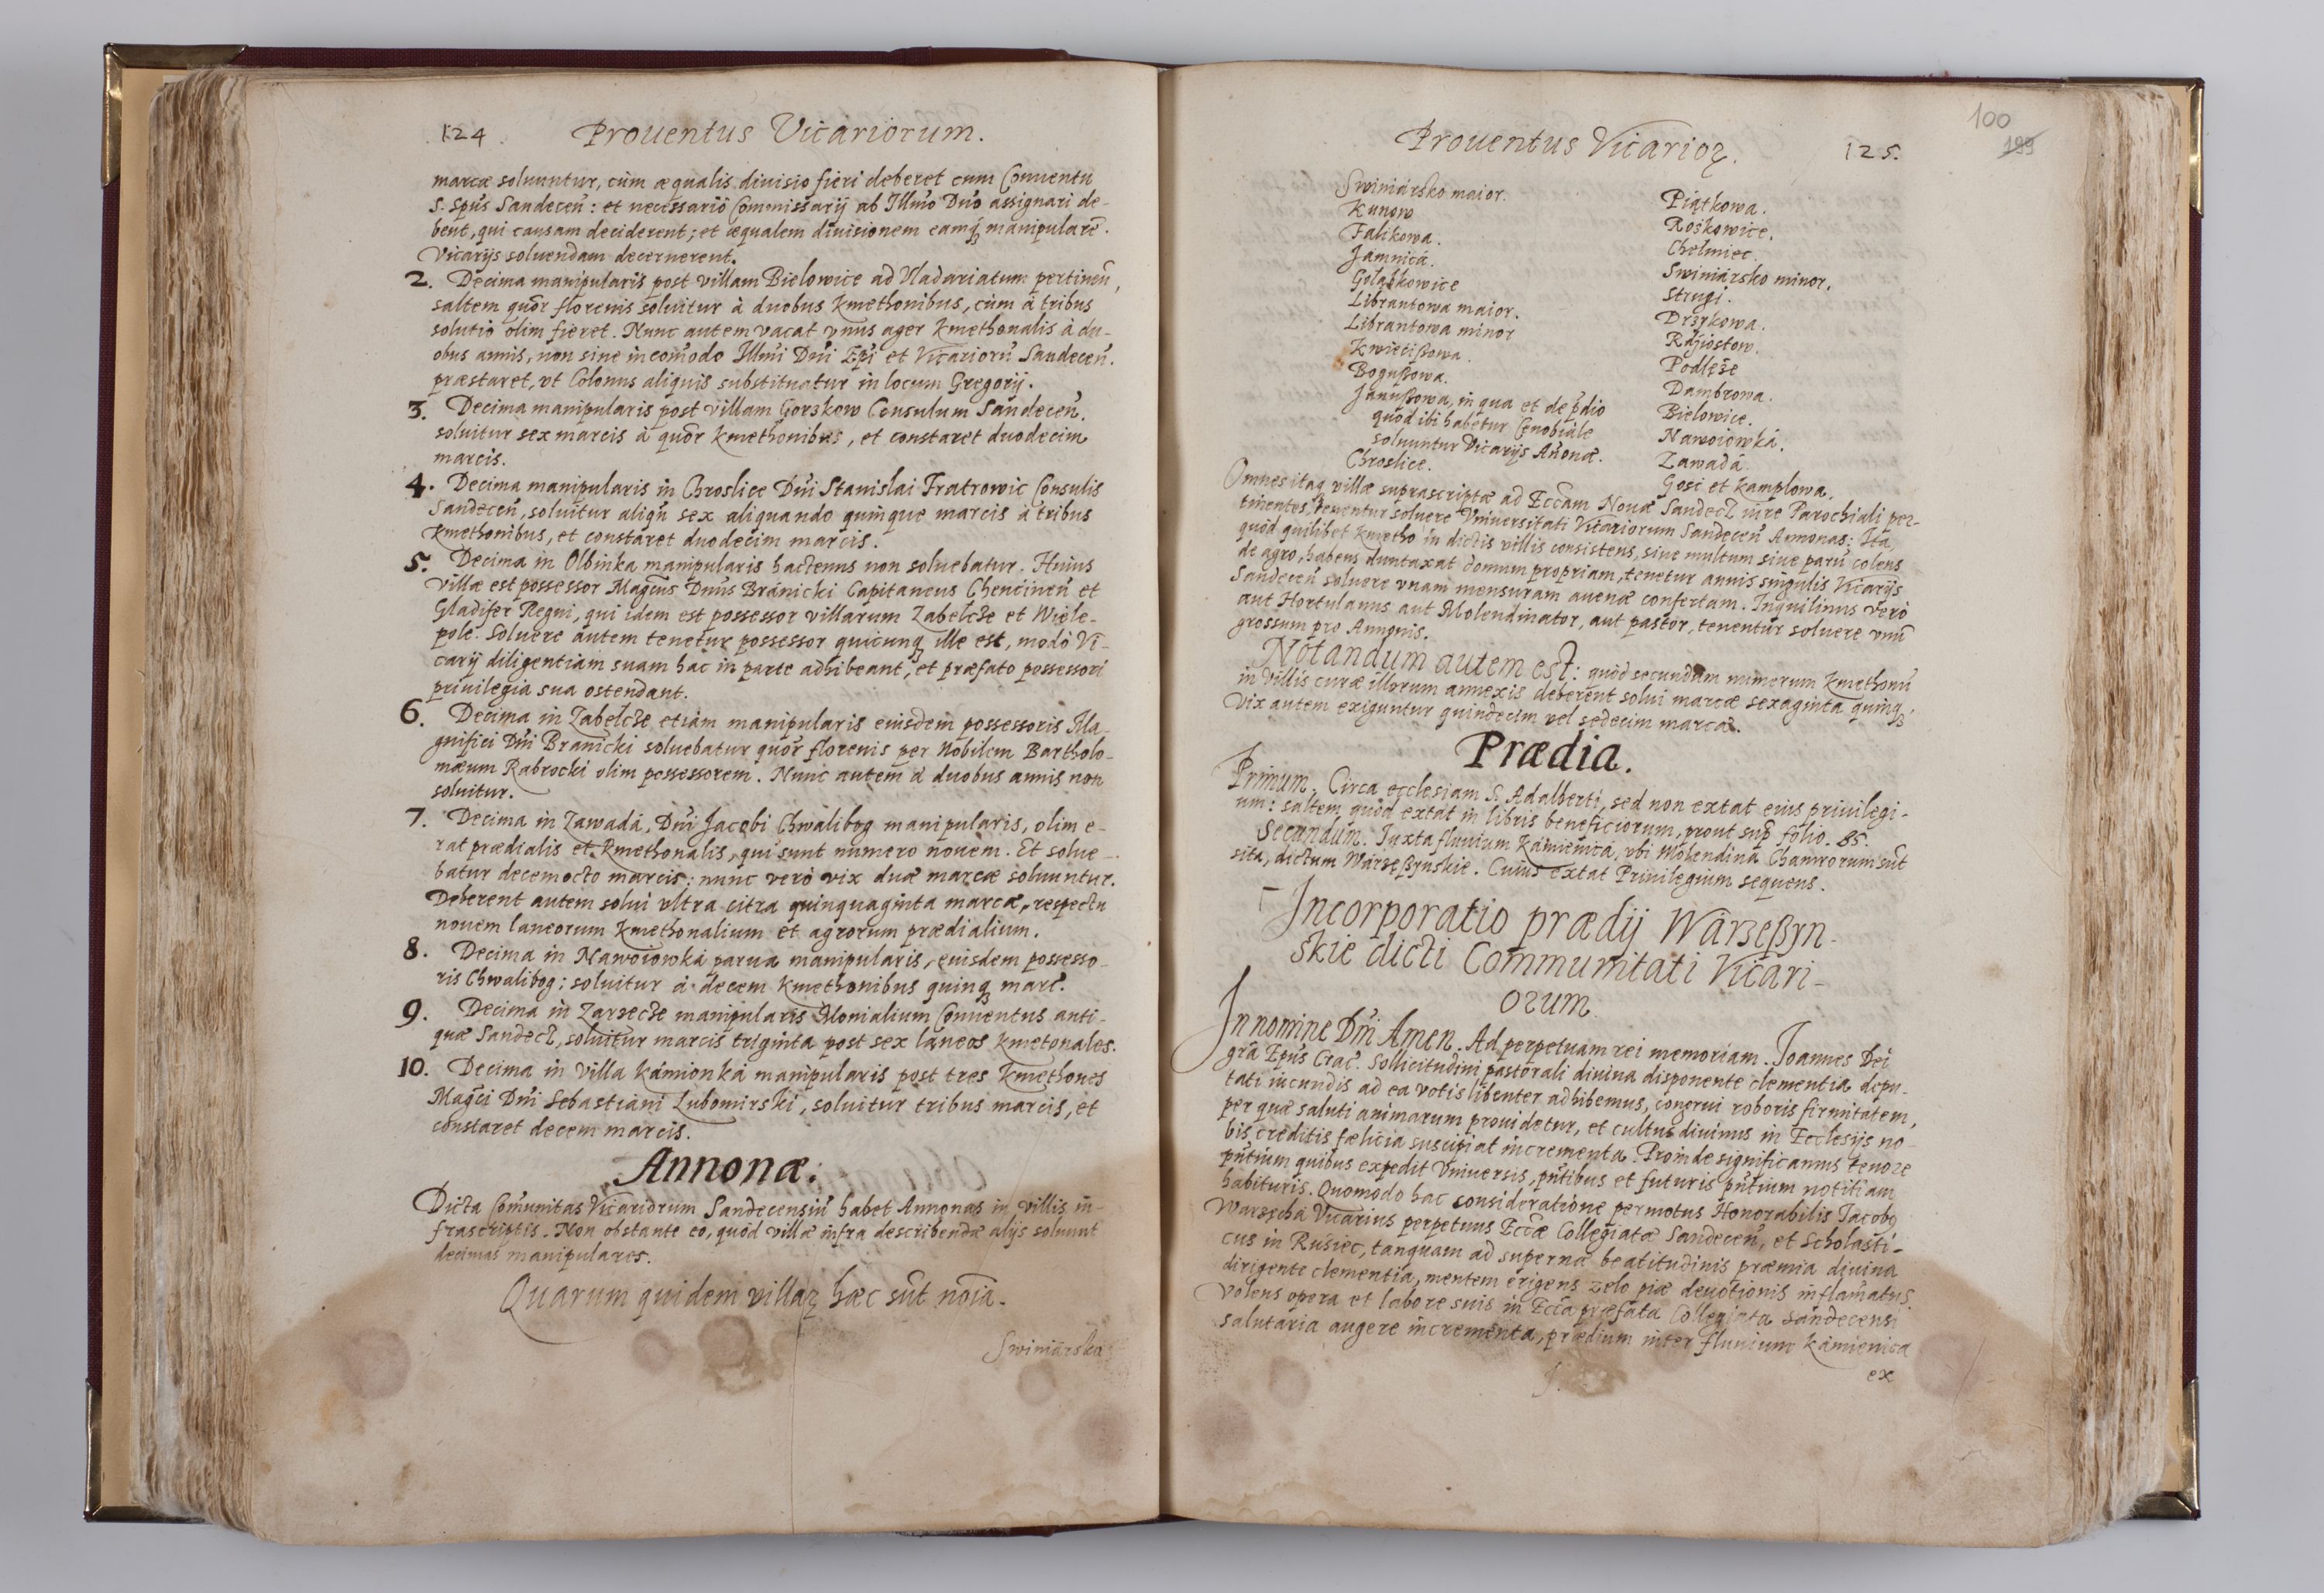 124 Prouentus Vicariorum.
marcæ soluuntur, cùm æqualis diuisio fieri deberet cum Conuentu
S. Spũs Sandeceñ: et necessariò Com̃issarij ab Illm̃o Dño assignari de-
bent, qui causam deciderent; et æqualem diuisionem eamq́; manipularẽ.
Vicarijs soluendam decernerent.
2. Decima manipularis post villam Bielowice ad Vladariatum pertineñ,
saltem quõr florenis soluitur à duobus Kmethonibus, cùm à tribus
solutio olim fieret. Nunc autem vacat vnus ager Kmethonalis à du-
obus annis, non sine incom̃odo Illm̃i Dñi Ep̃i et Vicariorũ Sandeceñ.
præstaret, vt Colonus aliquis substituatur in locum Gregorij.
3. Decima manipularis post villam Gorzkow Consulum Sandeceñ.
soluitur sex marcis à quõr Kmethonibus, et constaret duodecim
marcis.
4. Decima manipularis in Chroslice Dñi Stanislai Fratrowic Consulis
Sandeceñ, soluitur aliqñ sex aliquando quinque marcis à tribus
Kmethonibus, et constaret duodecim marcis.
5. Decima in Olbinka manipularis hactenus non soluebatur. Huius
villæ est possessor Magcũs Dnũs Bránicki Capitaneus Chencineñ et
Gladifer Regni, qui idem est possessor villarum Zabelcze et Wiele-
pole. Soluere autem tenetur possessor quicunq; ille est, modò Vi-
carij diligentiam suam hac in parte adhibeant, et præfato possessori
priuilegia sua ostendant.
6. Decima in Zabelcze etiàm manipularis eiusdem possessoris Ma-
gnifici Dñi Branicki soluebatur quõr florenis per Nobilem Bartholo-
mæum Rabrocki olim possessorem. Nunc autem à duobus annis non
soluitur.
7. Decima in Zawadá, Dñi Jacobi Chwalibog manipularis, olim e-
rat prædialis et Kmethonalis, qui sunt numero nouem. Et solue-
batur decemocto marcis: nunc verò vix duæ marcæ soluuntur.
Deberent autem solui vltra citra quinquaginta marcæ, respectu
nouem laneorum Kmethonalium et agrorum prædialium.
8. Decima in Nawoiowká parua manipularis, eiusdem possesso-
ris Chwalibog; soluitur à decem Kmethonibus quinq; marc̃.
9. Decima in Zarzecze manipularis Monialium Conuentus anti-
quæ Sandecz, soluitur marcis triginta post sex laneos Kmetonales.
10. Decima in villa Kámionká manipularis post tres Kmethones
Magc̃i Dñi Sebastiani Lubomirski, soluitur tribus marcis, et
constaret decem marcis.
Annonæ:
Dicta Com̃unitas Vicariorum Sandecensiũ habet Annonas in villis in-
frascriptis. Non obstante eo, quòd villæ infra describendæ alijs soluunt
decimas manipulares.
Quarum quidem villaꝝ hæc sũt noĩa.
Swiniárska
100
199
Prouentus Vicarioꝝ. 125.
Swiniársko maior.
Kunow
Falikowa.
Jamnicá.
Goląbkowice
Librantowa maior.
Librantowa minor
Kwiecißowa.
Bogußowa.
Janußowa, in qua et de p̃dio
quod ibi habetur Cenobiale
soluuntur Vicarijs Añonæ.
Chroslice.
Piątkowa.
Roszkowice.
Chełmiec.
Swiniársko minor.
Strugi.
Drzykowa.
Rdziostow.
Podlęże
Dambrowa.
Bielowice.
Nawoiowká.
Zawadá.
Gosi et Kamplowa.
Omnes itaq; villæ suprascriptæ ad Ecc̃am Nouæ Sandecz iure Parochiali per-
tinentes, tenentur soluere Vniuersitati Vicariorum Sandeceñ Annonas: Ita,
quòd quilibet Kmetho in dictis villis consistens, siue multum siue parũ colens
de agro, habens duntaxat domum propriam, tenetur annis singulis Vicarijs
Sandeceñ soluere vnam mensuram auenæ confertam. Inquilinus verò
aut Hortulanus aut Molendinator, aut pastor, tenentur soluere vnũ
grossum pro Annonis.
Notandum autem est: quòd secundum numerum Kmethonũ
in villis curæ illorum annexis deberent solui marcæ sexaginta quinq;
vix autem exiguntur quindecim vel sedecim marcæ.
Prædia.
Primum. Circa ecclesiam S. Adalberti, sed non extat eius priuilegi-
um: saltem quòd extat in libris beneficiorum, prout sup̃ folio. 85.
Secundum. Iuxta fluuium Kámienicá, vbi Molendina Chamrorum sũt
sita, dictum Wárzeßynskie. Cuius extat Priuilegium sequens.
Incorporatio prædij Wárzeßyn-
skie dicti Communitati Vicari-
orum
In nomine Dñi Amen. Ad perpetuam rei memoriam. Joannes Dei
grã Epũs Crac̃. Sollicitudini pastorali diuina disponente clementia depu-
tati iucundis ad ea votis libenter adhibemus, congrui roboris firmitatem,
per quæ saluti animarum prouidetur, et cultus diuinus in Ecclesijs no-
bis creditis fælicia suscipiat incrementa. Proinde significamus tenore
pñtium quibus expedit Vniuersis, pñtibus et futuris pñtium notitiam
habituris. Quomodo hac consideratione permotus Honorabilis Jacobꝫ
Warzechá Vicarius perpetuus Ecc̃æ Collegiatæ Sandeceñ, et Scholasti-
cus in Rusiec, tanquam ad supernæ beatitudinis præmia diuina
dirigente clementia, mentem erigens zelo piæ deuotionis inflam̃atus.
Volens opera et labore suis in Ecc̃a præfata Collegiata Sandecensi
salutaria augere incrementa, prædium inter fluuium Kámienicá
ex